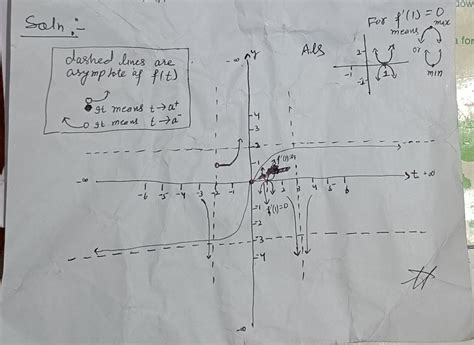 Soln :-
dashed lines are
asymptote of f(t)
It means t → a⁺
It means t → a⁻
Ans
For f'(1) = 0
means
max
or
min
2
-1
1
-2
-∞
y
4
3
2
-∞
-6 -5 -4 -3 -2 -1
1 2 3 4 5 6
t +∞
f'(1)=0
-1
-2
-3
-4
-∞